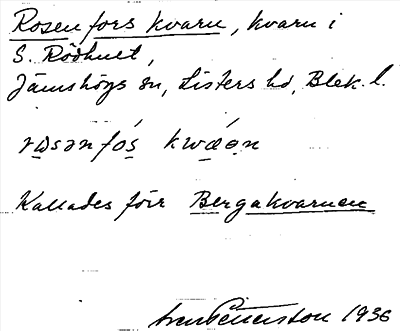 Rosenfors kvarn, kvarn i
S. Rödhult,
Jämshögs sn, Listers hd, Blek. l.
Kallades förr Bergakvarnen
1936